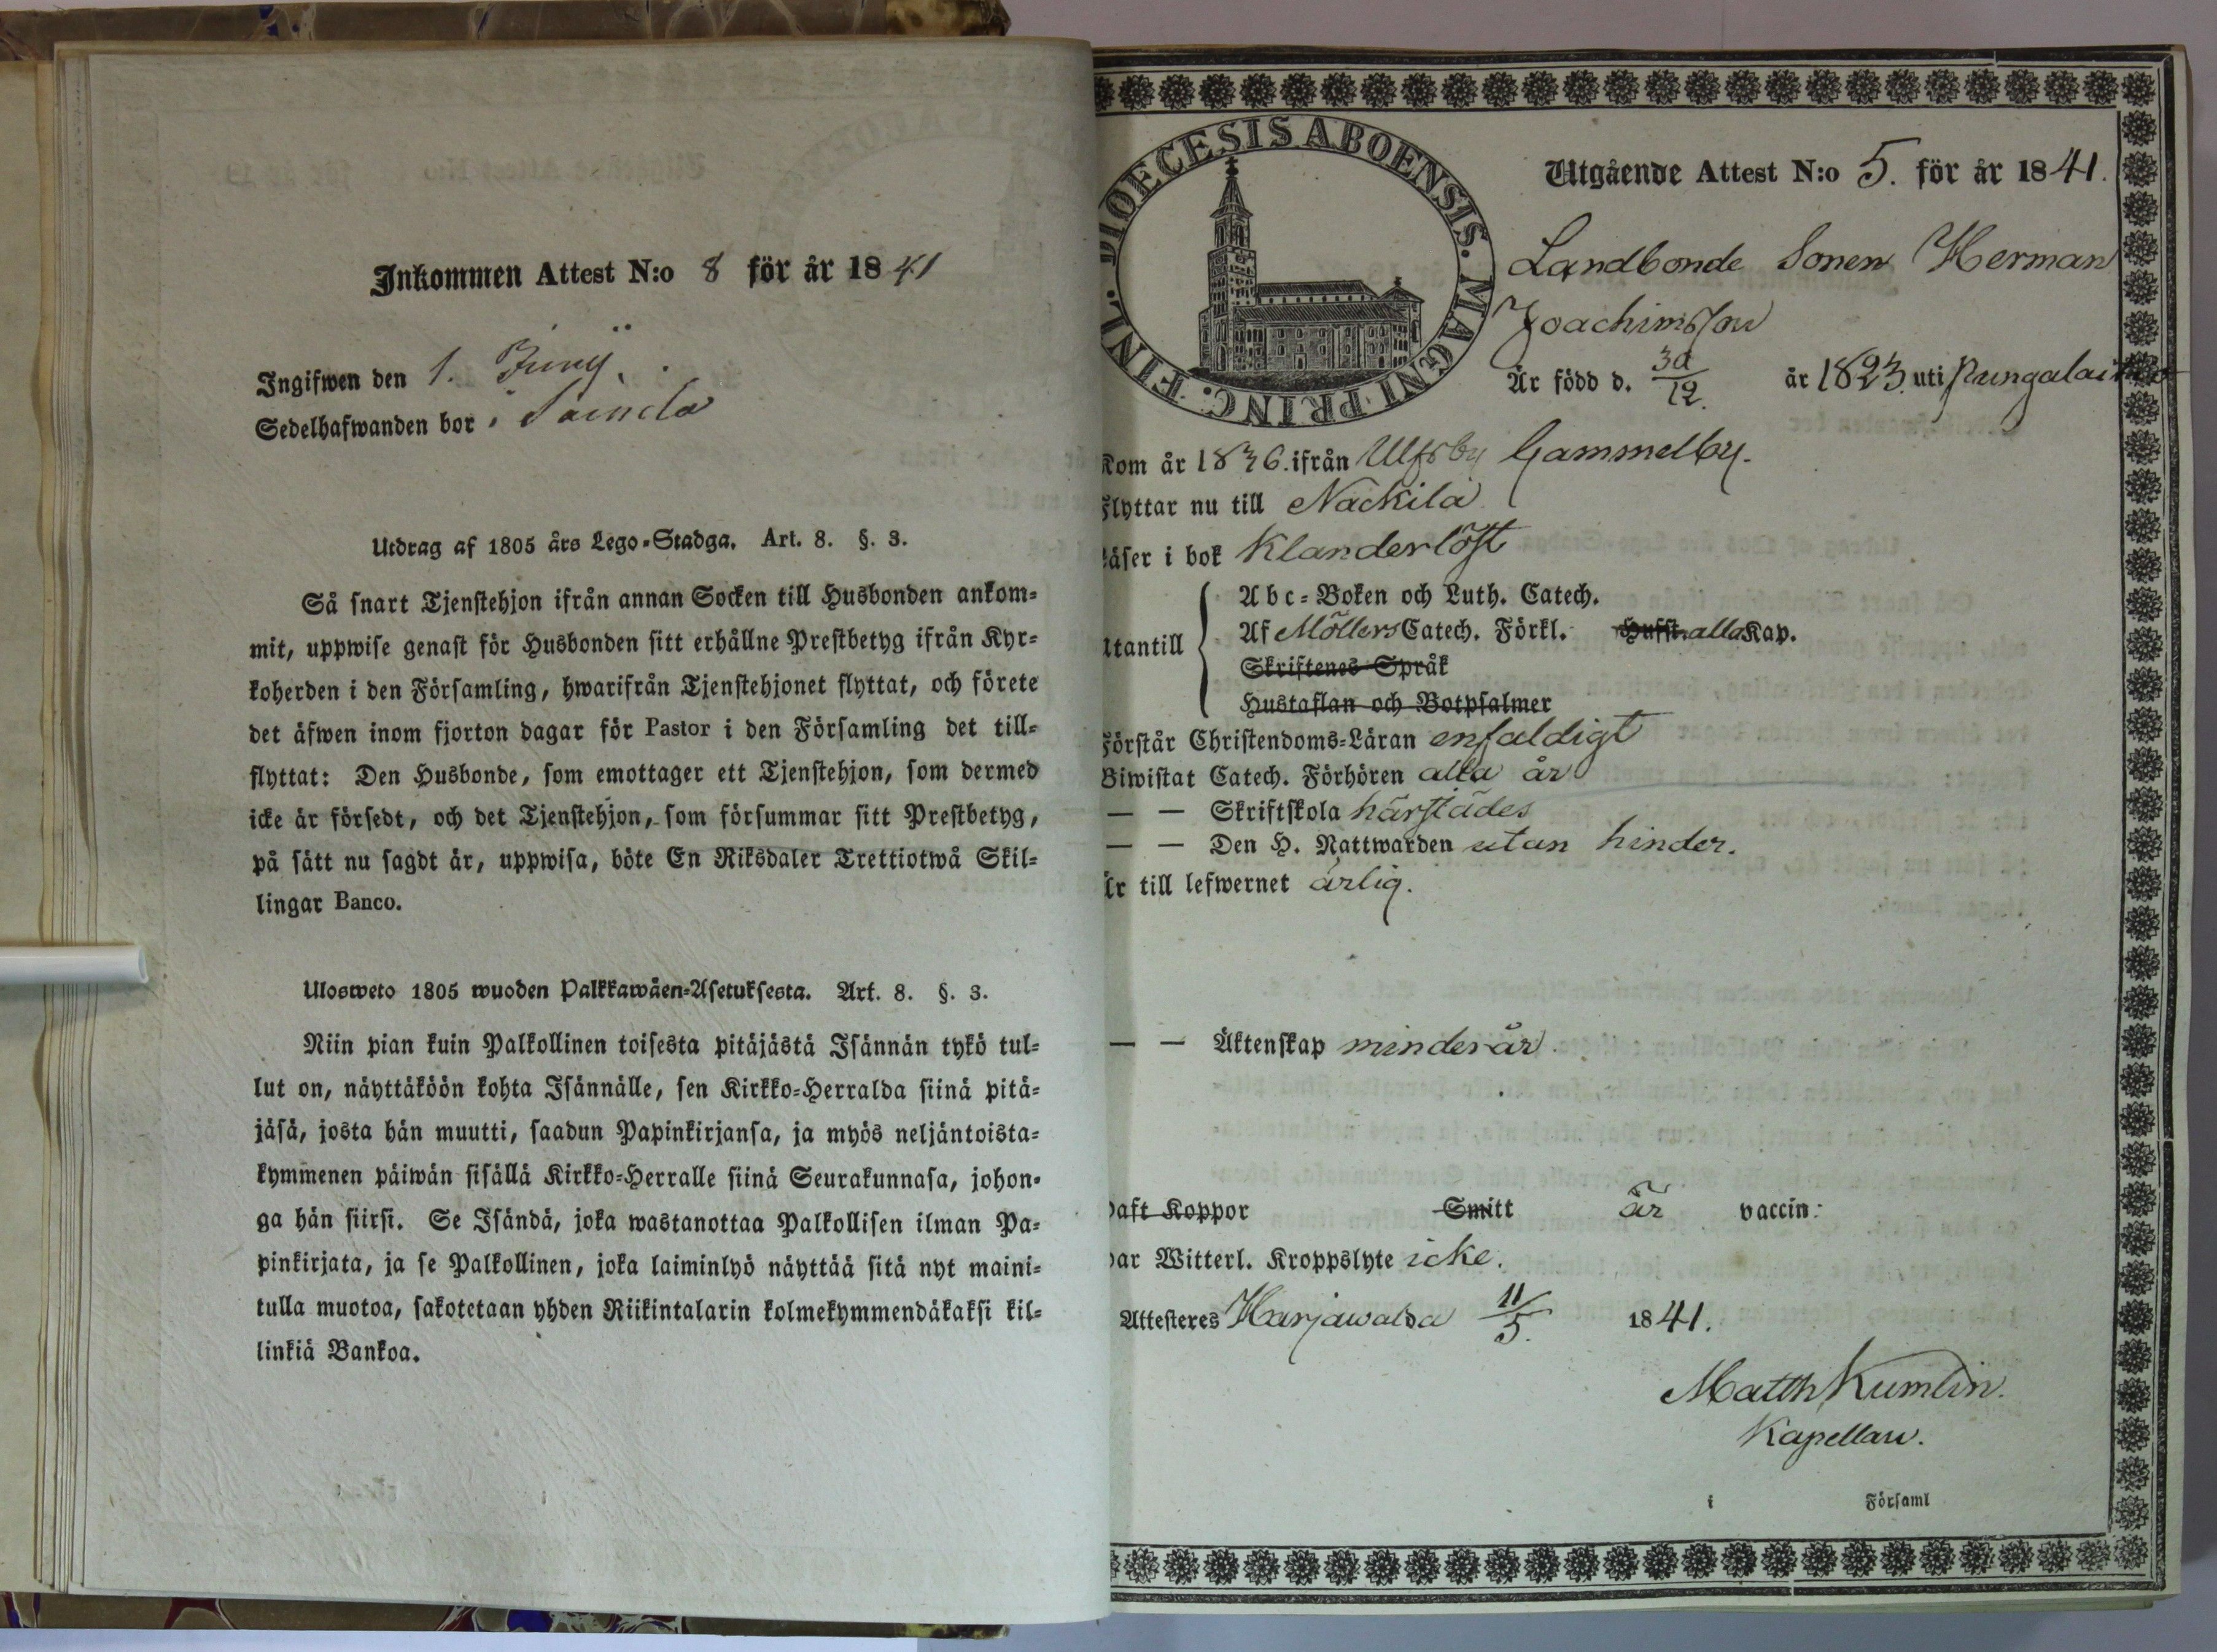 Inkommen Attest N:o 8 för år 1841
Ingifwen den 1. Junij.
Sedelhafwanden bor i
Utdrag af 1805 års Lego-Stadga. Art. 8. §. 3.
Så snart Tjenstehjon ifrån annan Socken till Husbonden ankom-
mit, uppwise genast för Husbonden sitt erhållne Prestbetyg ifrån Kyr-
koherden i den Församling, hwarifrån Tjenstehjonet flyttat, och förete
det äfwen inom fjorton dagar för Pastor i den Församling det till-
flyttat: Den Husbonde, som emottager ett Tjenstehjon, som dermed
icke är försedt, och det Tjenstehjon, som försummar sitt Prestbetyg,
på sätt nu sagdt är, uppwisa, böte En Riksdaler Trettiotwå Skil-
lingar Banco.
Ulosweto 1805 wuoden Palkkawäen-Asetuksesta. Art. 8. §. 3.
Niin pian kuin Palkollinen toisesta pitäjästä Isännän tykö tul-
lut on, näyttäköön kohta Isännälle, sen Kirkko-Herralda siinä pitä-
jäsä, josta hän muutti, saadun Papinkirjansa, ja myös neljäntoista-
kymmenen päiwän sisällä Kirkko-Herralle siinä Seurakunnasa, johon-
ga hän siirsi. Se Isändä, joka wastanottaa Palkollisen ilman Pa-
pinkirjata, ja se Palkollinen, joka laiminlyö näyttää sitä nyt maini-
tulla muotoa, sakotetaan yhden Riikintalarin kolmekymmendäkaksi kil-
linkiä Bankoa.
DIOECESIS ABOENSIS. MAGNI PRINC. FINL.
Utgående Attest N:o 5. för år 1841.
Landbonde Sonen Herman
Joachimsson
Är född d. 30/12. år 1823. uti
Kom år 1836. ifrån Ulfsby Gammelby.
Flyttar nu till Nackila
Läser i bok Klanderlöst
Abc-Boken och Luth. Catech.
Utantill Af Möllers Catech. Förkl. Hufst. alla Kap.
Skriftenes Språk
Hustaflan och Botpsalmer
Förstår Christendoms-Läran enfaldigt
Biwistat Catech. Förhören alla år
— — Skriftskola härstädes
— — Den H. Nattwarden utan hinder.
Är till lefwernet ärlig.
— — Äktenskap minderår.
Haft Koppor Smitt är vaccin:
Har Witterl. Kroppslyte icke.
Attesteres Harjawalda 11/5. 1841.
Matth Kumlin.
Kapellan.
i Församl